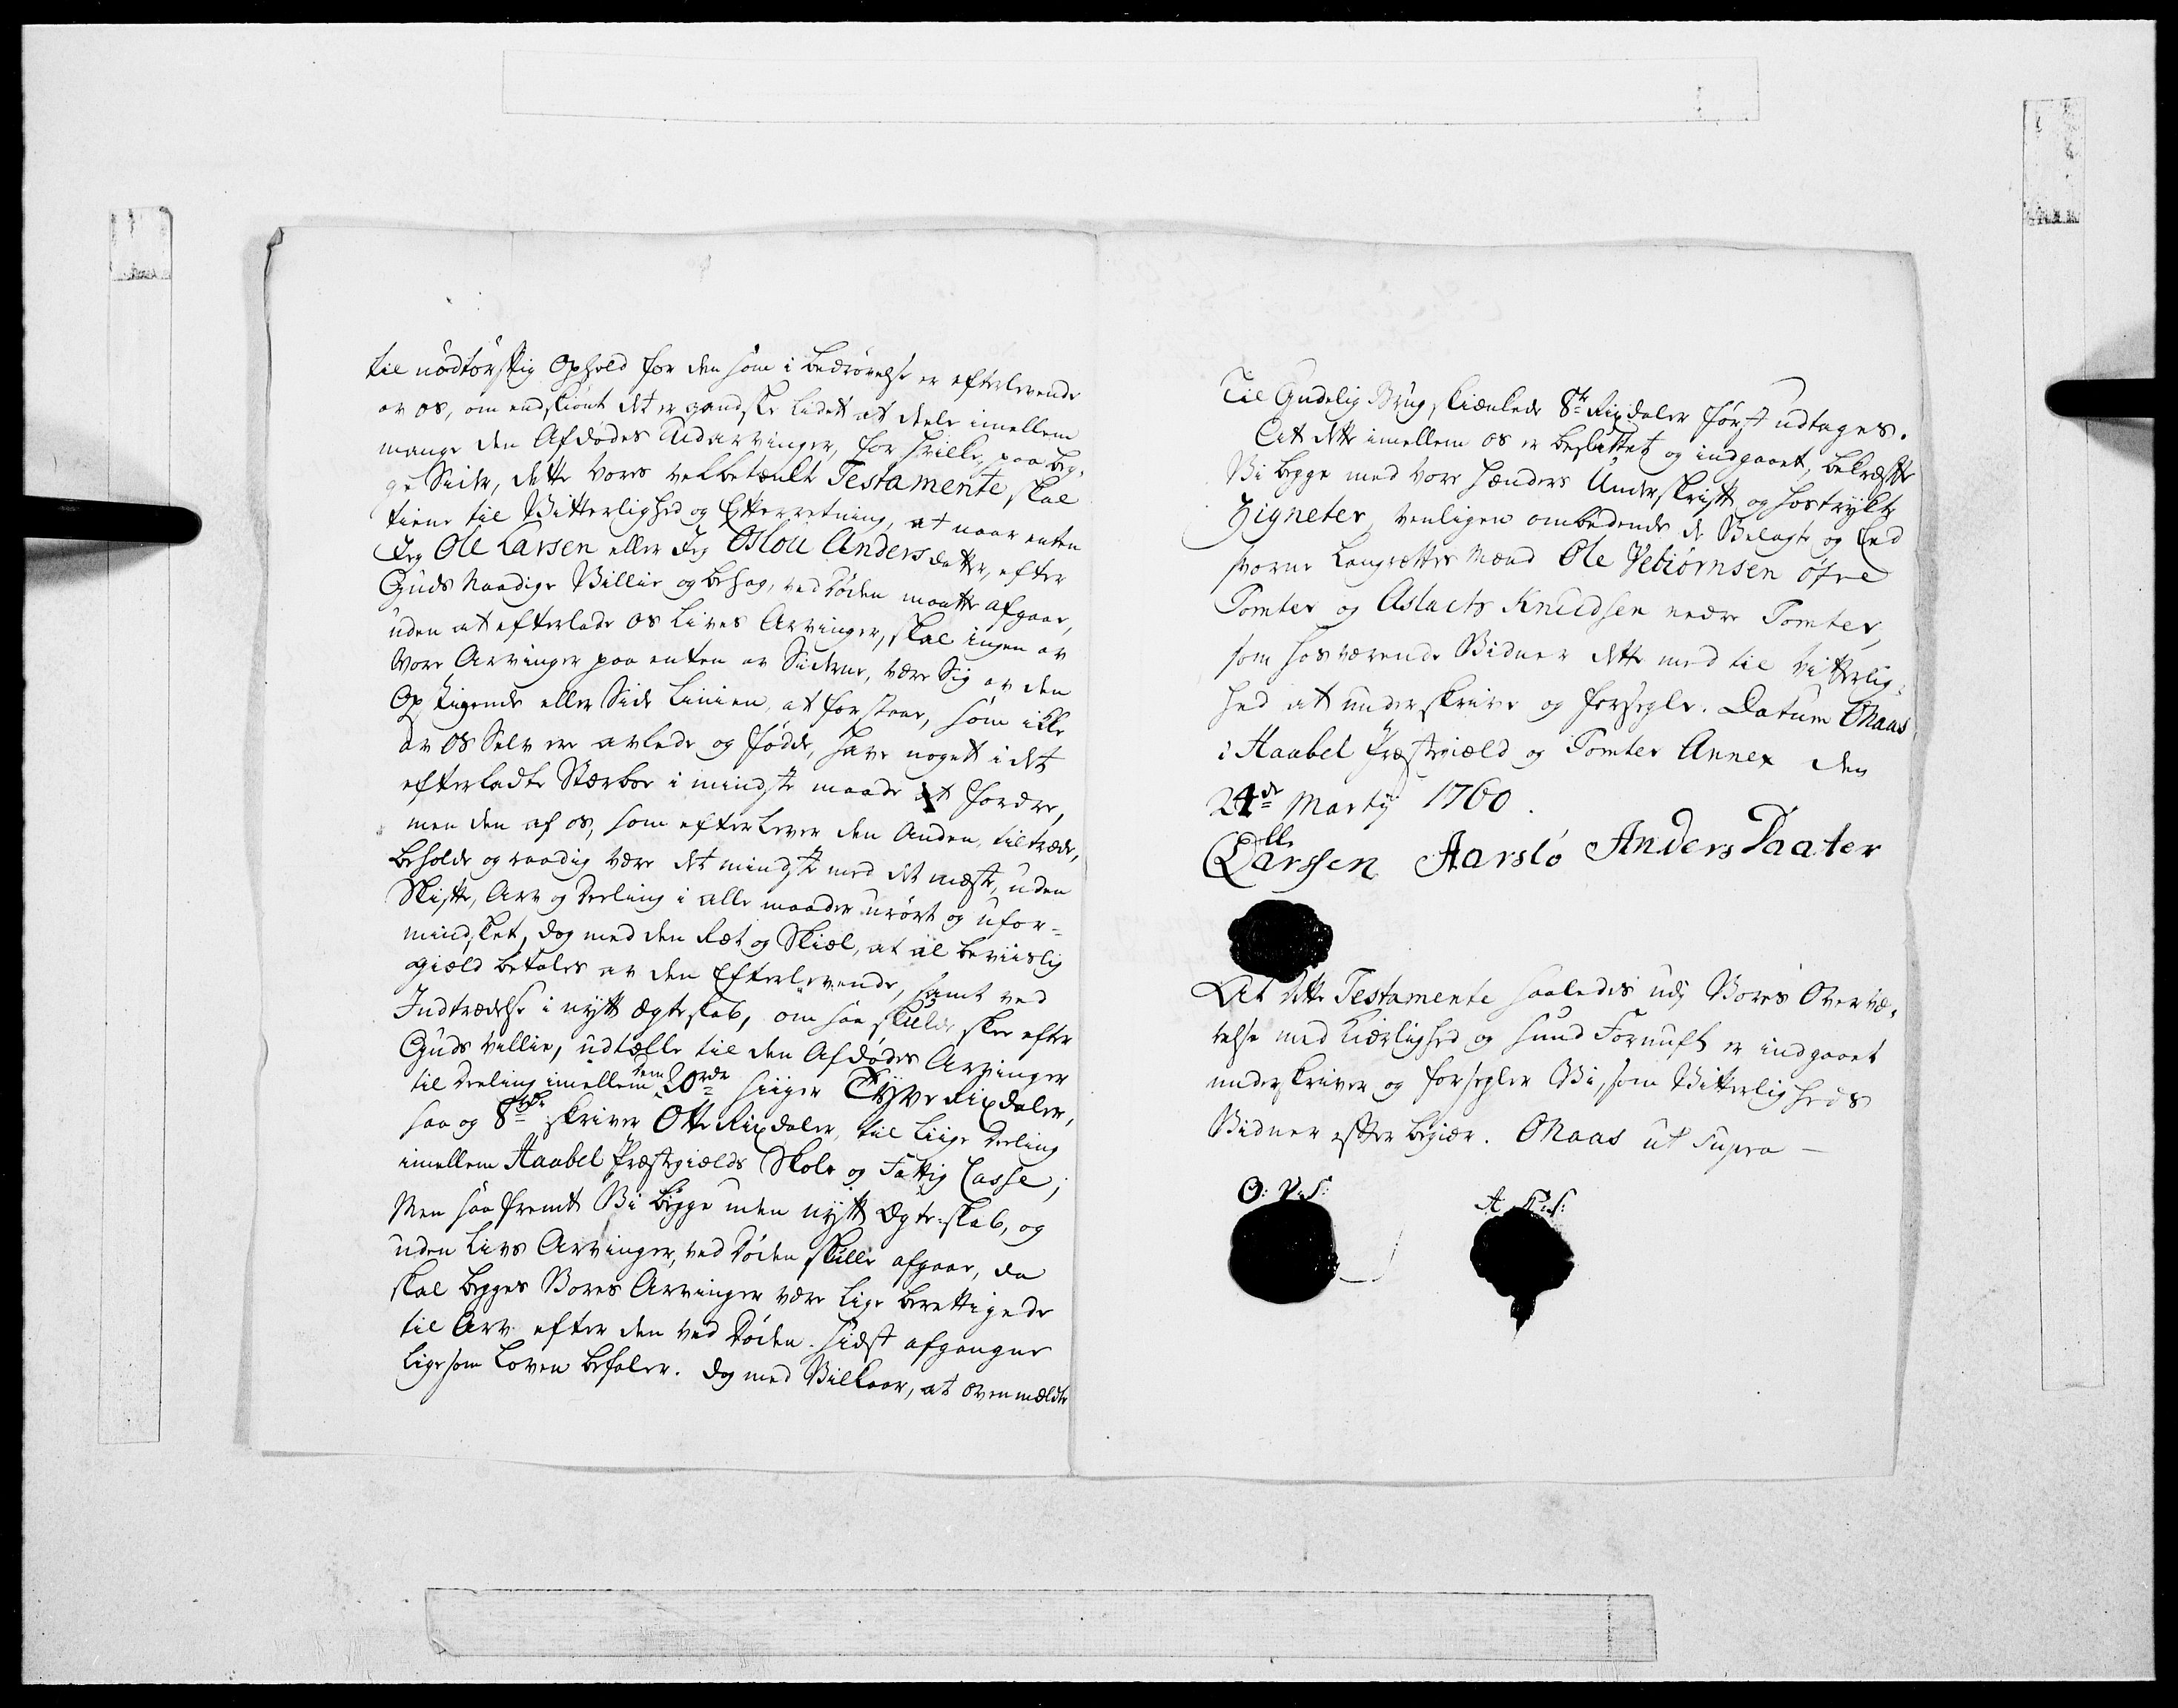 til nødtørftig Ophold for den som i bedrøvelse er efterlevende
av os, om endskiønt det er gandske lidet at deele imellem
mange den Afdødes Udarvinger, for skille, paa beg-
ge Sider, dette vores velbetænkte Testamente, skal
tiene til Vitterlighed og Efterretning, at naar enten
Jeg Ole Larsen eller Jeg Oslou Andersdatter, efter
Guds Naadige Villie og behag, ved Døden maatte afgaae,
uden at efterlade os Lives Arvinger, skal ingen av
Vore Arvinger paa enten av Siderne, være Sig av den
Opstigende eller Side Linien, at forstaae, som ikke
av os Selv ere avlede og fødde, have noget i det
efterladte Stærboe i mindste maade at fordre,
men den af os, som efterlever den Anden, tiltræde,
beholde og raadig være det mindste med det mæste, uden
Skifte, Arv og Deeling i alle maader urørt og ufor-
mindsket, dog med den Ret og Skiæl, at al beviislig
giæld betales av den Efterlevende, samt ved
Indtrædelse i nytt Ægteskab, om saa skulde skee efter
Guds Villie, udtælle til den Afdødes Arvinger
til Deeling imellem dem 20 rdr siiger Tyve Rixdaler,
saa og 8 rdr skriver Otte Rixdaler, til liige Deeling
imellem Haabel Præstegiælds Skole og Fattig Casse;
Men saa fremt Vi begge uden nytt Ægteskab, og
uden Livs Arvinger, ved Døden skulle afgaae, da
skal begges Vores Arvinger være lige berettigede
til Arv efter den ved Døden sidst afgangne
ligesom Loven befaler. Dog med Vilkaar, at ovenmeldte
Til Gudelig Brug skiænkede 8te Rixdaler først udtages.
At dette imellem os er besluttet og indgaaet, bekræfte
Vi begge med vore hænders Underskrift og hostrykte
Zigneter, venligen ombedende de Velagte og Eed
svorne Laugrettes Mænd Ole Vebiørnsen øfre
Tomter og Aslach Knudsen nedre Tomter,
som hosværende Vidner dette med til Vitterlig-
hed at underskrive og forsegle. Datum Maas
i Haabel Præstegiæld og Tomter Annex den
24de Martij 1760.
Olle
Larssen Aarslo Anders Daater
At dette Testamente saaledes udj Vores Overvæ-
relse med Kiærlighed og sund Fornuft er indgaaet
underskriver og forsegler Vi, som Vitterligheds
Vidner efter begiær. Maas ut supra —
O: V: S: A K: S: